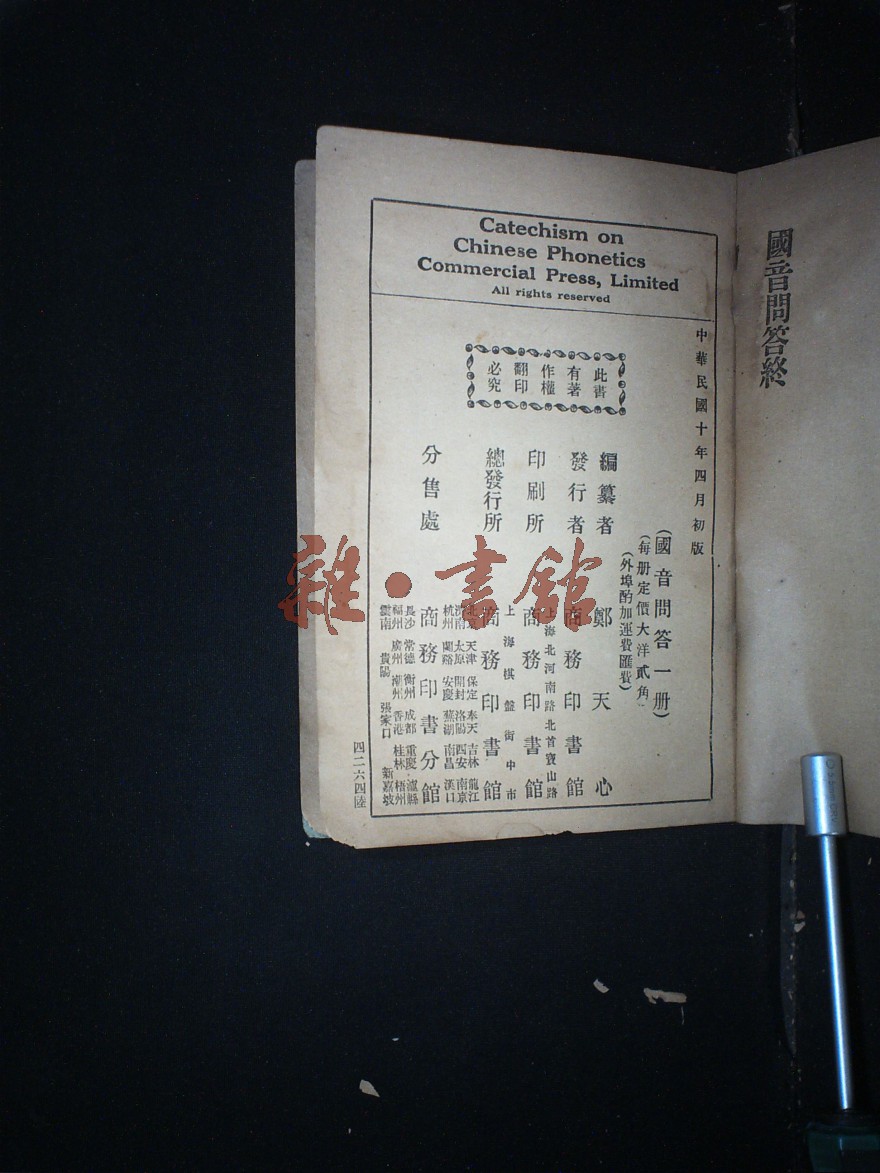 國音問答終
Catechism on
Chinese Phonetics
Commercial Press, Limited
All rights reserved
中華民國十年四月初版
(國音問答一册)
(每册定價大洋貳角)
(外埠酌加運費匯費)
此書
有著
作權
翻印
必究
編纂者 鄭天心
發行者 商務印書館
上海北河南路北首寶山路
印刷所 商務印書館
上海棋盤街中市
總發行所 商務印書館
北京 天津 保定 奉天 吉林 龍江
濟南 太原 開封 洛陽 西安 南京
杭州 蘭谿 安慶 蕪湖 南昌 漢口
分售處 商務印書分館
長沙 常德 衡州 成都 重慶 瀘縣
福州 廣州 潮州 香港 桂林 梧州
雲南 貴陽 張家口 新嘉坡
四二六四陸
雜·書館